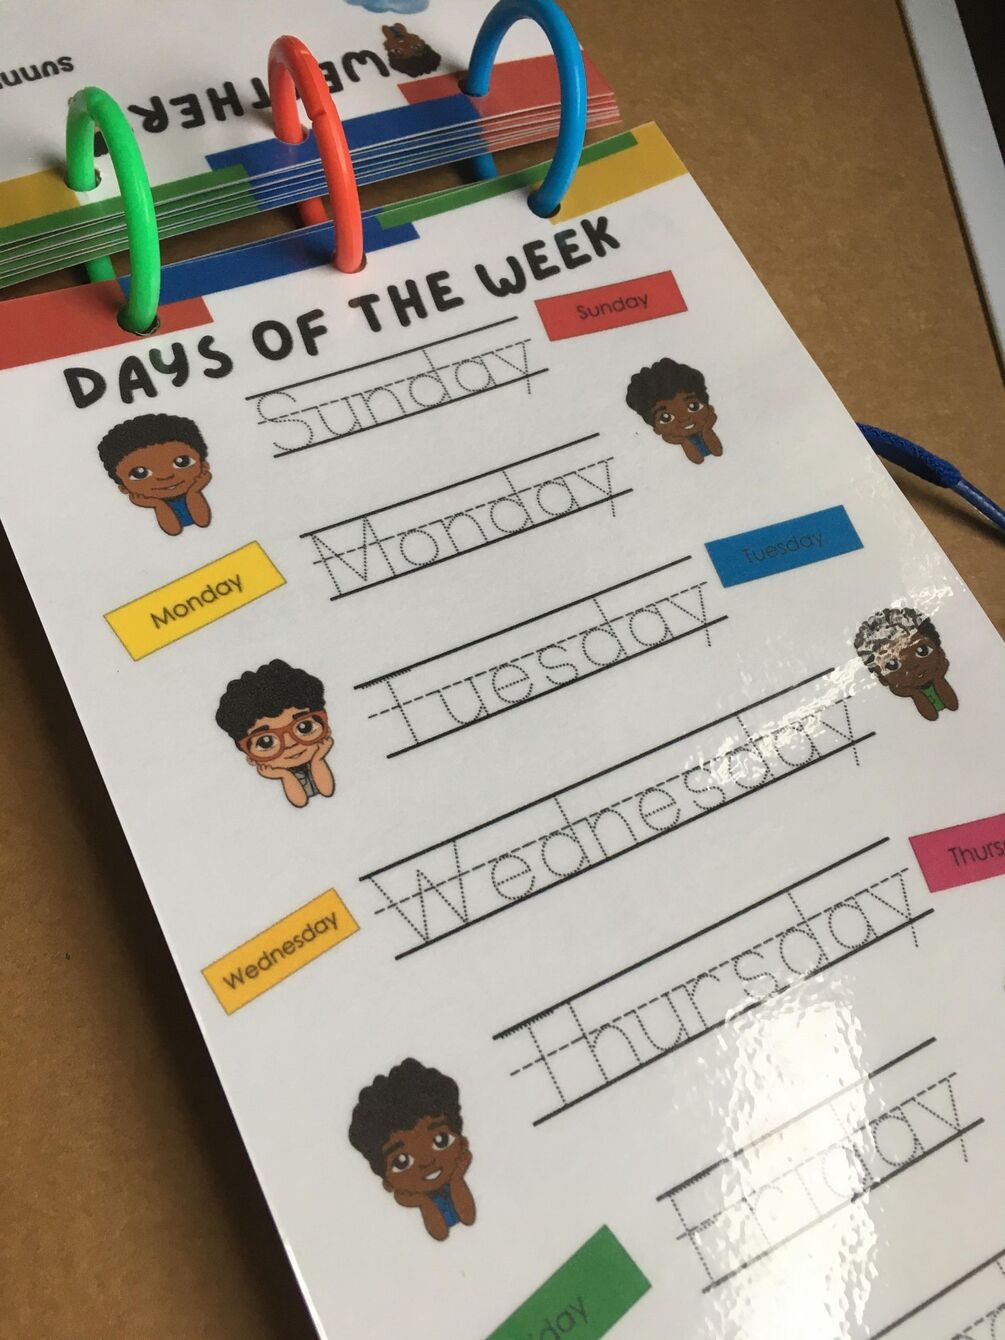 sunn
WEATHER
DAYS OF THE WEEK
Sunday
Sunday
Monday
Monday
Tuesday
Tuesday
Wednesday
Wednesday
Thurs
Thursday
Friday
iday